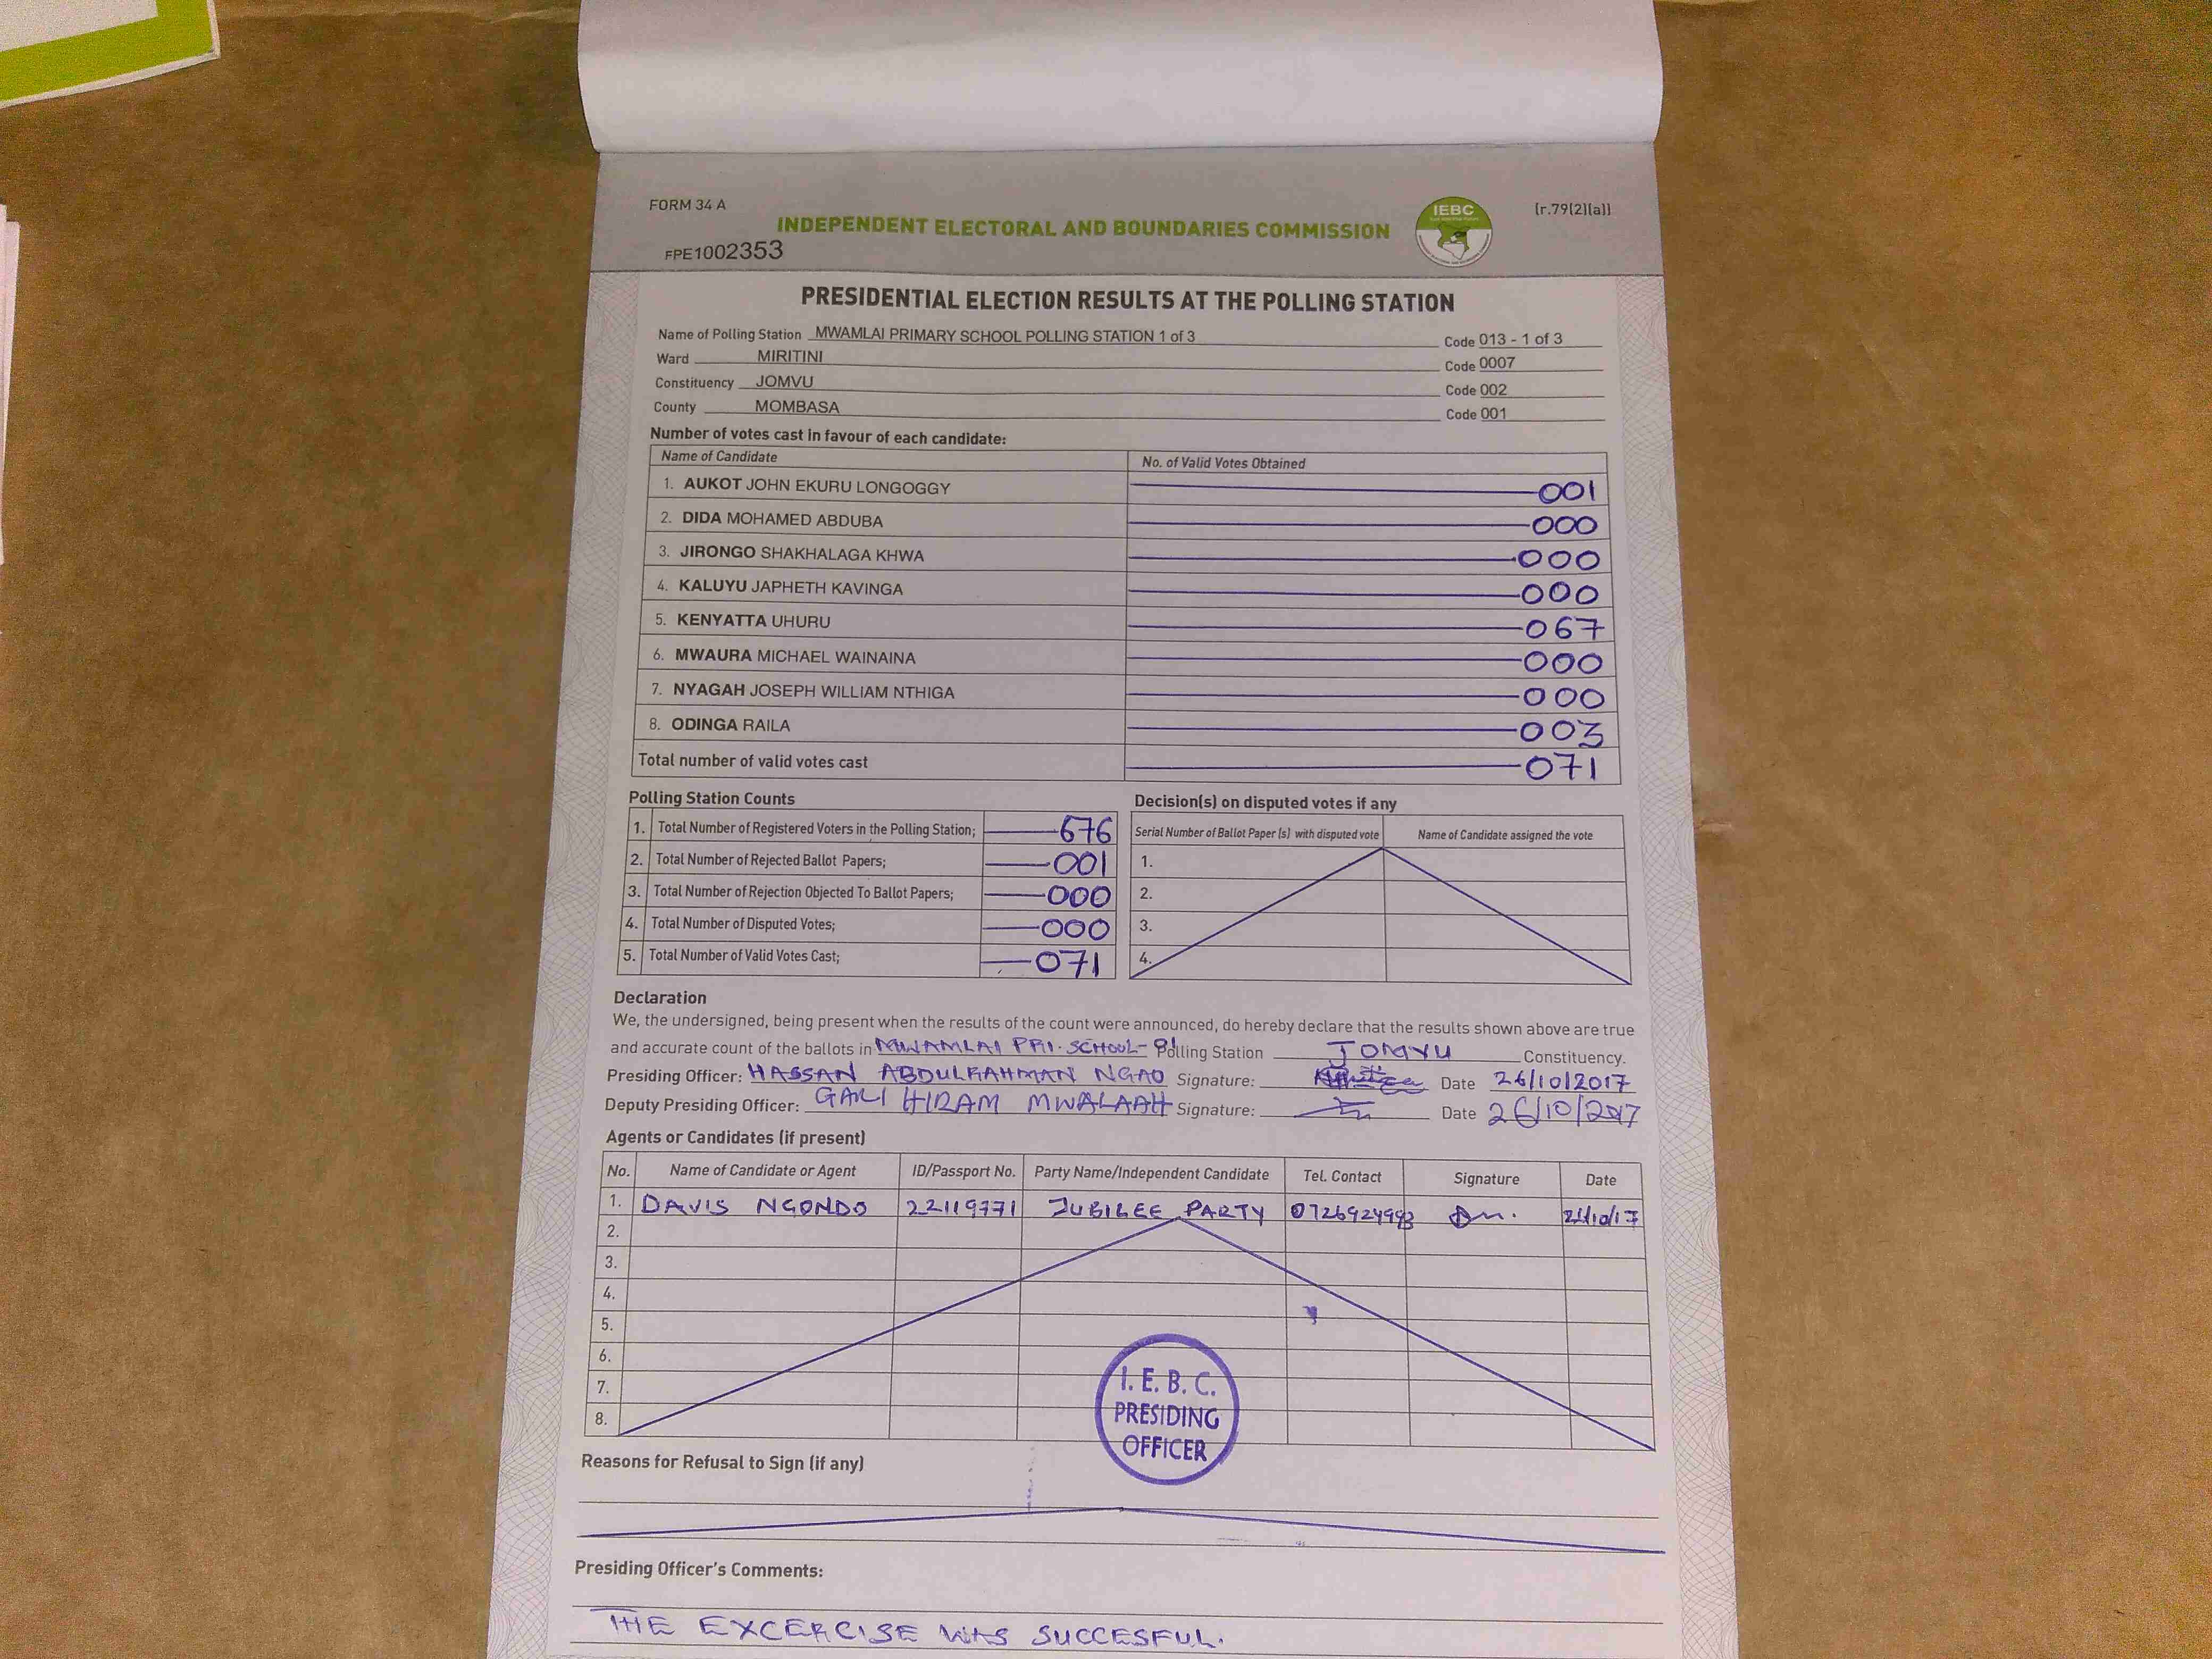 FORM 34 A
[r.79(2)(a)]
INDEPENDENT ELECTORAL AND BOUNDARIES COMMISSION
IEBC
FPE1002353
PRESIDENTIAL ELECTION RESULTS AT THE POLLING STATION
Name of Polling Station MWAMLAI PRIMARY SCHOOL POLLING STATION 1 of 3 Code 013 - 1 of 3
Ward MIRITINI Code 0007
Constituency JOMVU Code 002
County MOMBASA Code 001
Number of votes cast in favour of each candidate:
Name of Candidate No. of Valid Votes Obtained
1. AUKOT JOHN EKURU LONGOGGY 001
2. DIDA MOHAMED ABDUBA 000
3. JIRONGO SHAKHALAGA KHWA 000
4. KALUYU JAPHETH KAVINGA 000
5. KENYATTA UHURU 067
6. MWAURA MICHAEL WAINAINA 000
7. NYAGAH JOSEPH WILLIAM NTHIGA 000
8. ODINGA RAILA 003
Total number of valid votes cast 071
Polling Station Counts
1. Total Number of Registered Voters in the Polling Station; 676
2. Total Number of Rejected Ballot Papers; 001
3. Total Number of Rejection Objected To Ballot Papers; 000
4. Total Number of Disputed Votes; 000
5. Total Number of Valid Votes Cast; 071
Decision(s) on disputed votes if any
Serial Number of Ballot Paper (s) with disputed vote Name of Candidate assigned the vote
1.
2.
3.
4.
Declaration
We, the undersigned, being present when the results of the count were announced, do hereby declare that the results shown above are true
and accurate count of the ballots in MWAMLAI PRI. SCHOOL- Polling Station JOMVU Constituency.
Presiding Officer: HASSAN ABDULRAHMAN NGAO Signature: Date 26/10/2017
Deputy Presiding Officer: GARI HIRAM MWALAAH Signature: Date 26/10/2017
Agents or Candidates (if present)
No. Name of Candidate or Agent ID/Passport No. Party Name/Independent Candidate Tel. Contact Signature Date
1. DAVIS NGONDO 22119771 JUBILEE PARTY
2.
3.
4.
5.
6.
7.
8.
I. E. B. C.
PRESIDING
OFFICER
Reasons for Refusal to Sign (if any)
Presiding Officer's Comments:
THE EXCERCISE WAS SUCCESFUL.